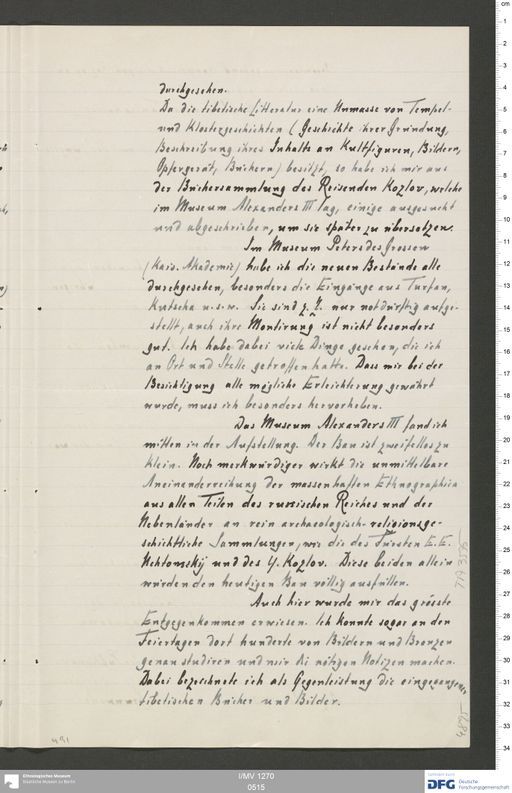 durchgesehen.
Da die tibetische Litteratur eine Unmasse von Tempel-
und Klostergeschichten (Geschichte ihrer Gründung,
Beschreibung ihres Inhalts an Kultfiguren, Bildern,
Opfergerät, Büchern) besitzt, so habe ich mir aus
der Büchersammlung des Reisenden Kozlov, welche
im Museum Alexanders III lag, einige ausgesucht
und abgeschrieben, um sie später zu übersetzen.
Im Museum Peters des Grossen
(Kais. Akademie) habe ich die neuen Bestände alle
durchgesehen, besonders die Eingänge aus Turfan,
Kutscha u.s.w. Sie sind z. T. nur notdürftig aufge-
stellt, auch ihre Montirung ist nicht besonders
gut. Ich habe dabei viele Dinge gesehen, die ich
an Ort und Stelle getroffen hatte. Dass mir bei der
Besichtigung alle mögliche Erleichterung gewährt
wurde, muss ich besonders hervorheben.
Das Museum Alexanders III fand ich
mitten in der Aufstellung. Der Bau ist zweifellos zu
klein. Noch merkwürdiger wirkt die unmittelbare
Aneinanderreihung der massenhaften Ethnographica
aus allen Teilen des russischen Reiches und der
Nebenländer an rein archaeologisch-religionsge-
schichtliche Sammlungen, wie die des Fürsten E.E.
Uchtomskij und des Kozlov. Diese beiden allein
würden den heutigen Bau völlig ausfüllen.
Auch hier wurde mir das grösste
Entgegenkommen erwiesen. Ich konnte sogar an den
Feiertagen dort hunderte von Bildern und Bronzen
genau studiren und mir die nötigen Notizen machen.
Dabei bezeichnete ich als Gegenleistung die eingegangenen
tibetischen Bücher und Bilder.
Ethnologisches Museum
Staatliche Museen zu Berlin
I/MV 1270
0515
DFG
Deutsche
Forschungsgemeinschaft